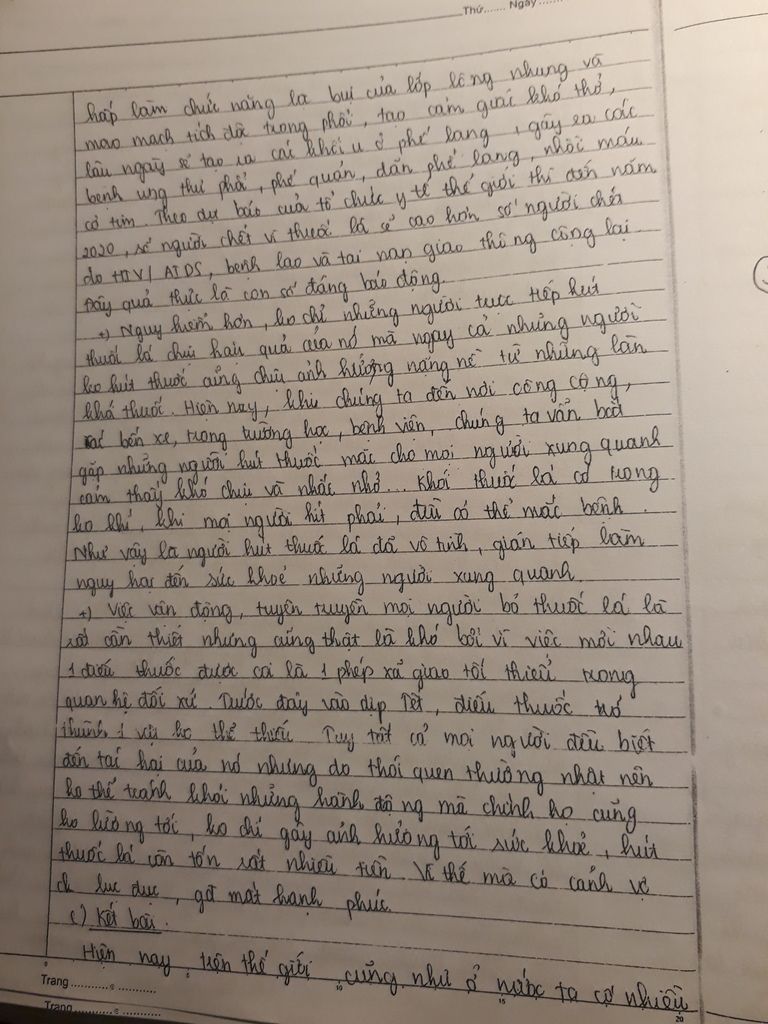 Thứ...... Ngày......
hấp làm chức năng là bụi của lớp lông nhung và
mao mạch tích độc trong phổi, tạo cảm giác khó thở,
lâu ngày sẽ tạo ra các khối u ở phế lang, gây ra các
bệnh ung thư phổi, phế quản, dãn phế lang, nhồi máu
cơ tim. Theo dự báo của tổ chức y tế thế giới thì đến năm
2020, số người chết vì thuốc lá sẽ cao hơn số người chết
do HIV/AIDS, bệnh lao và tai nạn giao thông cộng lại.
Đây quả thực là con số đáng báo động.
+) Nguy hiểm hơn, ko chỉ những người trực tiếp hút
thuốc lá chịu hậu quả của nó mà ngay cả những người
ko hút thuốc cũng chịu ảnh hưởng nặng nề từ những làn
khó thuốc. Hiện nay, khi chúng ta đến nơi công cộng,
các bến xe, trong trường học, bệnh viện, chúng ta vẫn bắt
gặp những người hút thuốc mặc cho mọi người xung quanh
cảm thấy khó chịu và nhắc nhở... Khói thuốc lá có trong
ko khí, khi mọi người hít phải, đều có thể mắc bệnh.
Như vậy là người hút thuốc lá đã vô tình, gián tiếp làm
nguy hại đến sức khoẻ những người xung quanh.
+) Việc vận động, tuyên truyền mọi người bỏ thuốc lá là
rất cần thiết nhưng cũng thật là khó bởi vì việc mời nhau
1 điếu thuốc được coi là 1 phép xã giao tối thiểu trong
quan hệ đối xử. Trước đây vào dịp Tết, điếu thuốc trở
thành 1 vị ko thể thiếu. Tuy tất cả mọi người đều biết
đến tác hại của nó nhưng do thói quen thường nhật nên
ko thể tránh khỏi những hành động mà chính họ cũng
ko lường tới, ko chỉ gây ảnh hưởng tới sức khoẻ, hút
thuốc lá còn tốn rất nhiều tiền. Vì thế mà có cảnh vợ
ck lục đục, gđ mất hạnh phúc.
c) Kết bài.
Hiện nay, trên thế giới cũng như ở nước ta có nhiều
Trang ............
Trang ............
5
10
15
20